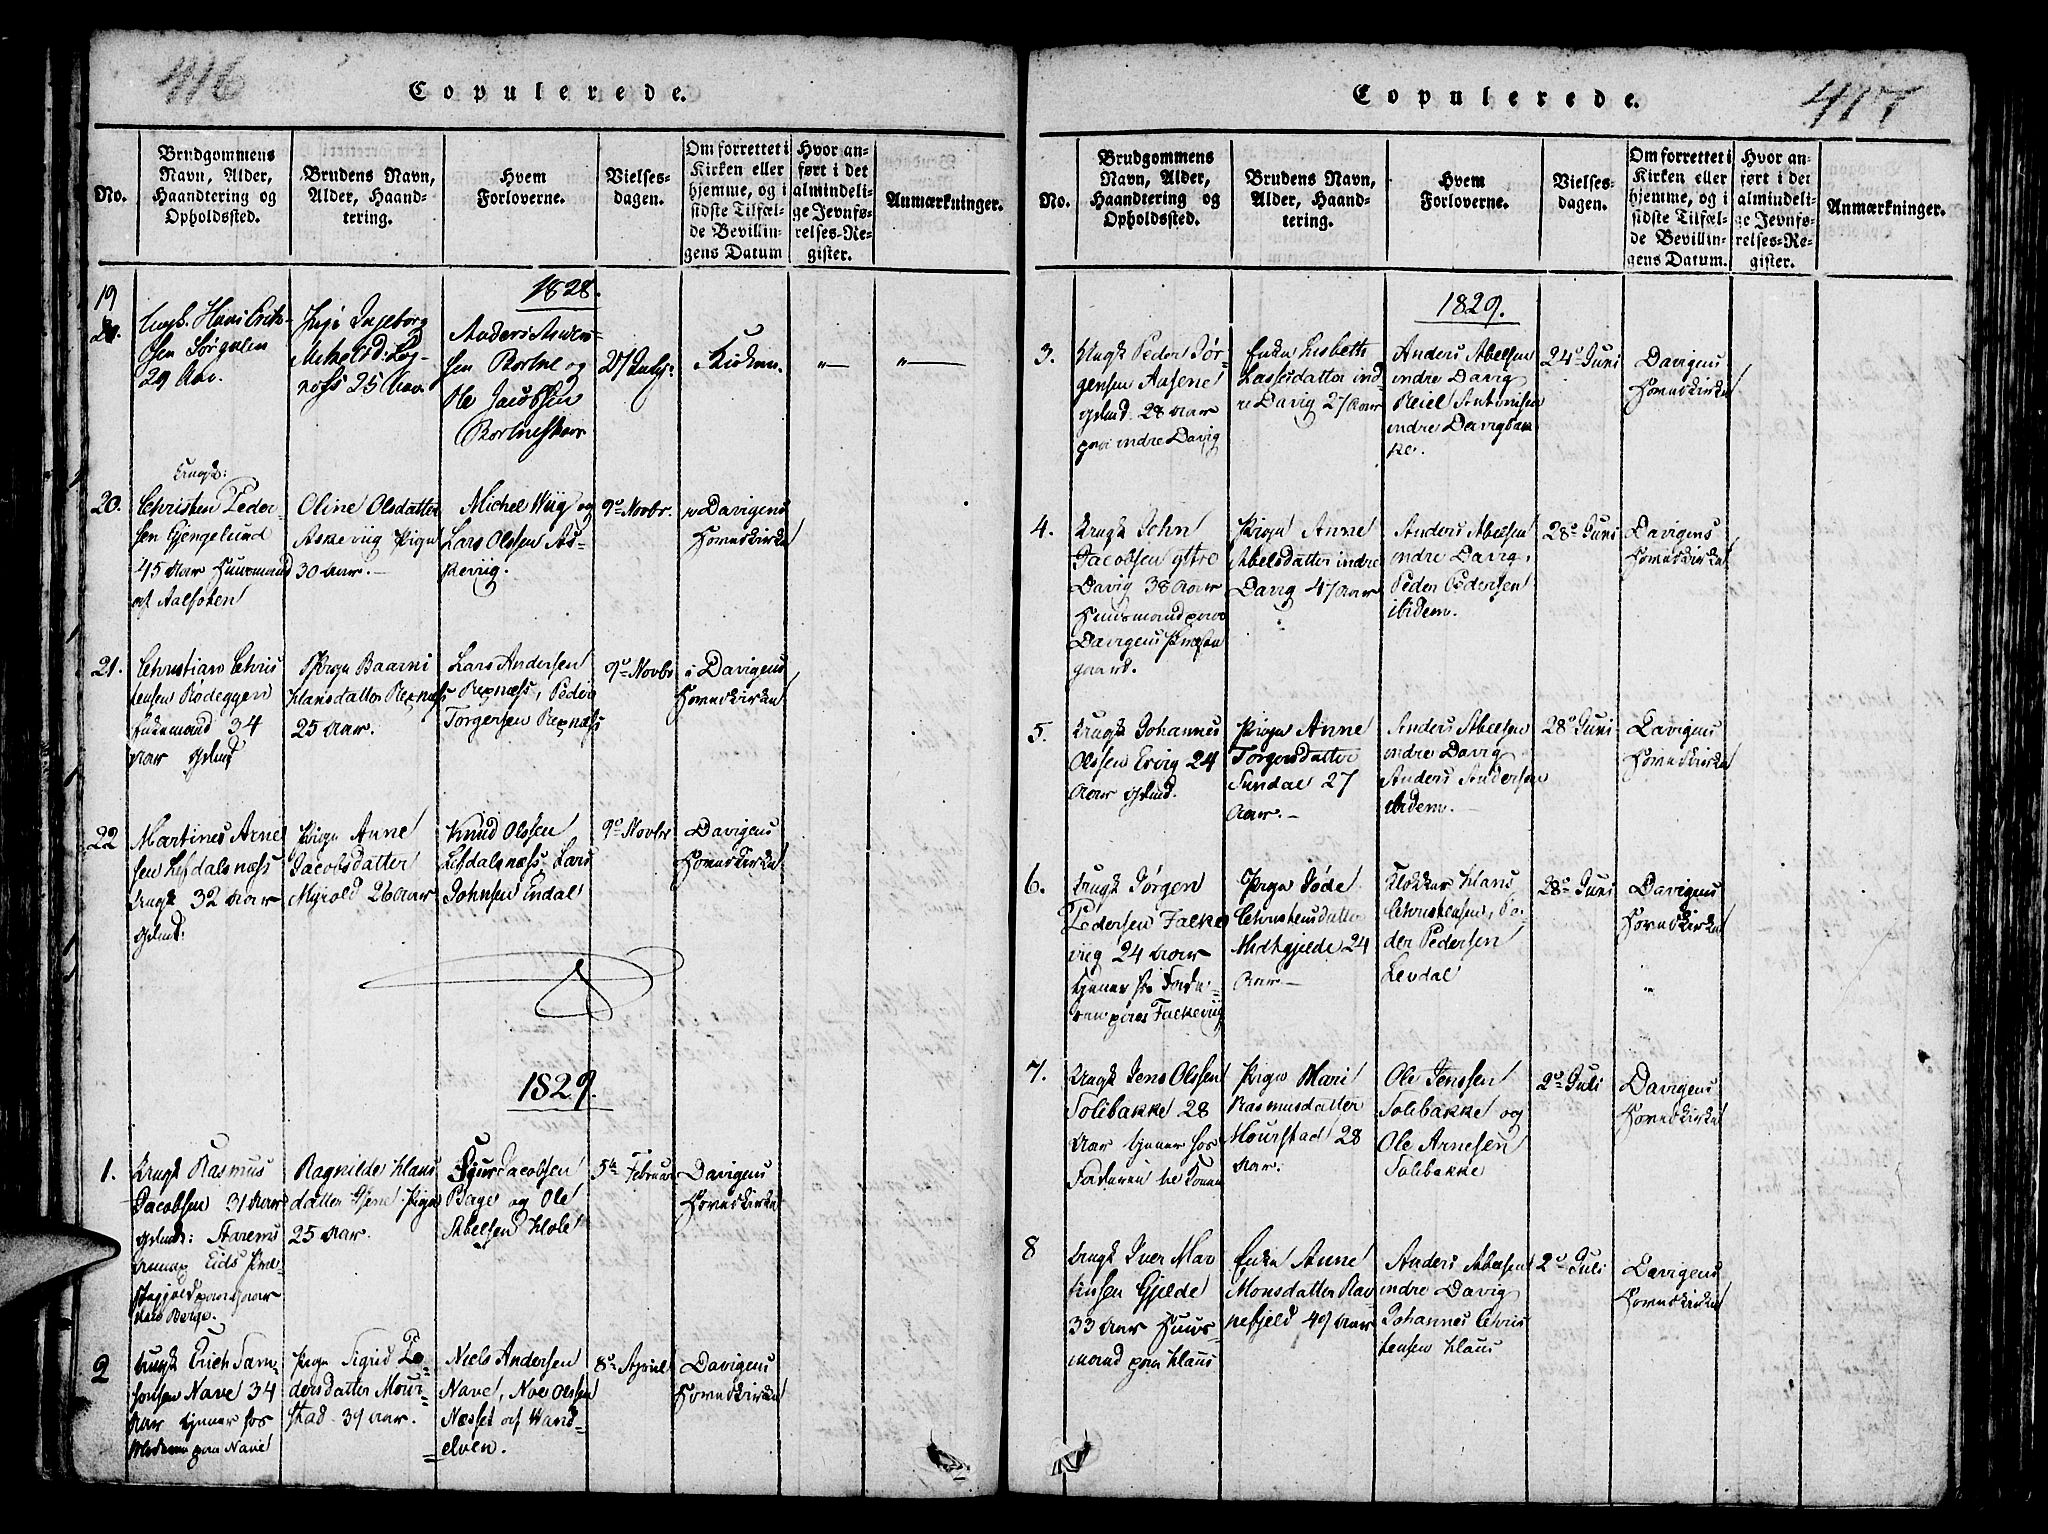 416
Copulerede.
No.
Brudgommens
Navn, Alder,
Haandtering og
Opholdssted.
Brudens Navn,
Alder, Haand-
tering.
Hvem
Forloverne.
Vielses-
dagen.
Om forrettet i
Kirken eller
hjemme, og i
sidste Tilfæl-
de Bevillin-
gens Datum
Hvor an-
ført i det
almindeli-
ge Jevnfø-
relses-Re-
gister.
Anmærkninger.
1828.
19
Ungk. Hans Erik-
sen Sørgulen
29 Aar.
Pige Ingeborg
25 Aar.
Anders Asmu-
sen Bortne og
Ole Jacobsen
Bortneskoor
27 July.
Kirken.
20.
Ungk:
Christen Peder-
sen Gjengelund
45 Aar Huusmand
af Aalfoten
Oline Olsdatter
Askeviig Pige
30 Aar.
Michel Wiig og
Lars Olssen As-
keviig.
9de Novbr.
i Davigens
Hovedkirke
21.
Christian Chris
tensen Rødeggen
Enkemand 34
Aar Gslmd
Pige Baarni
Hansdatter Rexnæss
25 Aar.
Lars Andersen
Rexnæss, Peder
Torgersen Rexnæss
9de Novbr
i Davigens
Hovedkirke
22
Martines Arne
sen Lefdalsnæss
Ungk 32 Aar
Gslmd.
Pige Anne
Jacobsdatter
Myrold 26 Aar
Knud Olssen
Lefdalsnæss, Lars
Johnsen Endal
9de Novbr
Davigens
Hovedkirke
1829.
1.
Ungk Rasmus
Jacobsen 31 Aar
Gslmd: Starems
Eids Præ-
stegjeld
Berge.
Ragnilde Hans
datter Hjene Pige
25 Aar.
Sjur Jacobsen
Berge og Ole
Abelsen Hole
5te Februar
Davigens
Hovedkirke
2
Ungk Erich Sam-
sonsen Nave 34
Aar tjener hos
Moderen paa Nave
Pige Sigrid Pe-
dersdatter Mour-
stad 39 Aar.
Niels Andersen
Nave, Noe Olssen
Næsset af Wand-
elven.
8de April
Davigens
Hovedkirke
417
Copulerede.
No.
Brudgommens
Navn, Alder,
Haandtering og
Opholdssted.
Brudens Navn,
Alder, Haand-
tering.
Hvem
Forloverne.
Vielses-
dagen.
Om forrettet i
Kirken eller
hjemme, og i
sidste Tilfæl-
de Bevillin-
gens Datum.
Hvor an-
ført i det
almindeli-
ge Jevnfø-
relses-Re-
gister.
Anmærkninger.
1829.
3.
Ungk Peder Jør-
gensen Aasene
Gslmd. 28 Aar
paa indre Davig
Enke Lisbeth
Lassesdatter ind-
re Davig 27 Aar
Anders Abelsen
indre Davig
Reiel Antonisen
indre Davigbak
ke.
24de Juni
Davigens
Hovedkirke
4.
Ungk John
Jacobsen ytre
Davig 38 Aar
Huusmand paa
Davigens Præste
gaard.
Pige Anne
Abelsdatter indre
Davig 47 Aar
Anders Abelsen
indre Davig,
Peder Pedersen
ibidem.
28de Juni
Davigens
Hovedkirke
5.
Ungk Johannes
Olssen Ervig 24
Aar Gslmd.
Pige Anne
Torgersdatter
Sundal 27
Aar.
Anders Abelsen
indre Davig
Anders Andersen
ibidem.
28de Juni
Davigens
Hovedkirke
6.
Ungk Jørgen
Pedersen Falke
viig 24 Aar
tjener hos Fade-
ren paa Falkeviig
Pige Jøde
Christensdatter
Midtgjelde 24
Aar
Klokker Hans
Christensen, Pe-
der Pedersen
Levdal
28de Juni
Davigens
Hovedkirke
7.
Ungk Jens Olssen
Solibakke 28
Aar tjener hos
Faderen
Pige Mari
Rasmusdatter
Mourstad 28
Aar.
Ole Jenssen
Solibakke og
Ole Arnesen
Solibakke
2de Juli
Davigens
Hovedkirke
8
Ungk Iver Mar
tinsen Gjelde
33 Aar Huus-
mand paa Haus
Enke Anne
Monsdatter Rav
nefjeld 49 Aar
Anders Abelsen
indre Davig
Johannes Chris
tensen Haus
2de Juli
Davigens
Hovedkirke